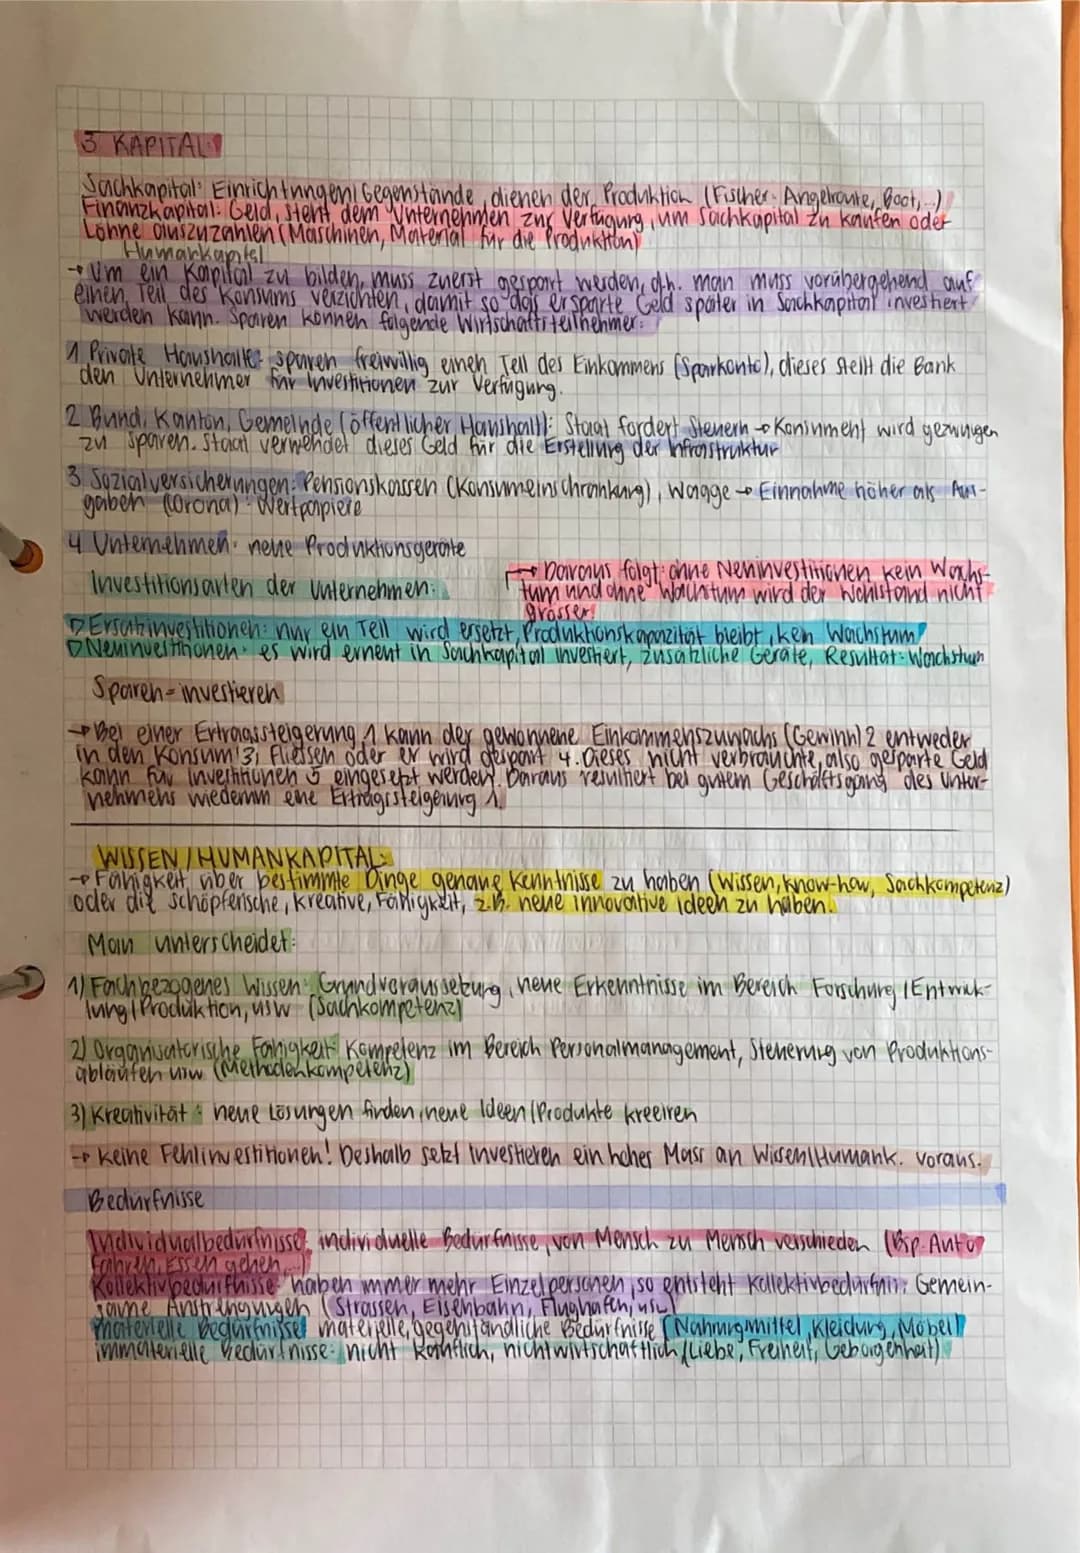 3 KAPITAL:
Sachkapital: Einrichtungen/Gegenstände, dienen der Produktion (Fischer-Angelroute, Boot,...)
Finanzkapital: Geld, steht dem Unternehmen zur Verfügung, um Sachkapital zu kaufen oder
Löhne auszuzahlen (Maschinen, Material für die Produktion)
Humankapital
→ Um ein Kapital zu bilden, muss zuerst gespart werden, d.h. man muss vorübergehend auf
einen Teil des Konsums verzichten, damit so das ersparte Geld später in Sachkapital investiert
werden kann. Sparen können folgende Wirtschaftsteilnehmer:
1 Private Haushalte: sparen freiwillig einen Teil des Einkommens (Sparkonto), dieses stellt die Bank
den Unternehmer für Investitionen zur Verfügung.
2 Bund, Kanton, Gemeinde (öffentlicher Haushalt): Staat fordert Steuern → Konsument wird gezwungen
zu sparen. Staat verwendet dieses Geld für die Erstellung der Infrastruktur
3 Sozialversicherungen: Pensionskassen (Konsumeinschränkung), Waage → Einnahme höher als Aus-
gaben (Corona): Wertpapiere
4 Unternehmen: neue Produktionsgeräte
Investitionsarten der Unternehmen:
→ Daraus folgt: ohne Neuinvestitionen kein Wachs-
tum und ohne Wachstum wird der Wohlstand nicht
grösser!
▷ Ersatzinvestitionen: nur ein Teil wird ersetzt, Produktionskapazität bleibt, kein Wachstum!
▷ Neuinvestitionen: es wird erneut in Sachkapital investiert, zusätzliche Geräte, Resultat: Wachstum
Sparen = investieren
→ Bei einer Ertragssteigerung 1 kann der gewonnene Einkommenszuwachs (Gewinn) 2 entweder
in den Konsum 3, fliessen oder er wird gespart 4. Dieses nicht verbrauchte, also gesparte Geld
kann für Investitionen 5 eingesetzt werden. Daraus resultiert bei gutem Geschäftsgang des Unter-
nehmens wiederum eine Ertragssteigerung 1.
WISSEN / HUMANKAPITAL:
→ Fähigkeit über bestimmte Dinge genaue Kenntnisse zu haben (Wissen, know-how, Sachkompetenz)
oder die schöpferische, kreative, Fähigkeit, z.B. neue innovative Ideen zu haben.
Man unterscheidet:
1) Fachbezogenes Wissen: Grundvoraussetzung, neue Erkenntnisse im Bereich Forschung/Entwick-
lung/Produktion, usw (Sachkompetenz)
2) Organisatorische Fähigkeit: Kompetenz im Bereich Personalmanagement, Steuerung von Produktions-
abläufen usw (Methodenkompetenz)
3) Kreativität: neue Lösungen finden, neue Ideen/Produkte kreeiren
→ Keine Fehlinvestitionen! Deshalb setzt Investieren ein hohes Mass an Wissen/Humank. voraus.
Bedürfnisse
Individualbedürfnisse: individuelle Bedürfnisse, von Mensch zu Mensch verschieden (Bsp. Auto
fahren, Essen gehen,...)
Kollektivbedürfnisse: haben immer mehr Einzelpersonen, so entsteht Kollektivbedürfnis; Gemein-
same Anstrengungen (Strassen, Eisenbahn, Flughafen, usw)
materielle Bedürfnisse: materielle, gegenständliche Bedürfnisse (Nahrungsmittel, Kleidung, Möbel)
immaterielle Bedürfnisse: nicht käuflich, nicht wirtschaftlich (Liebe, Freiheit, Geborgenheit)